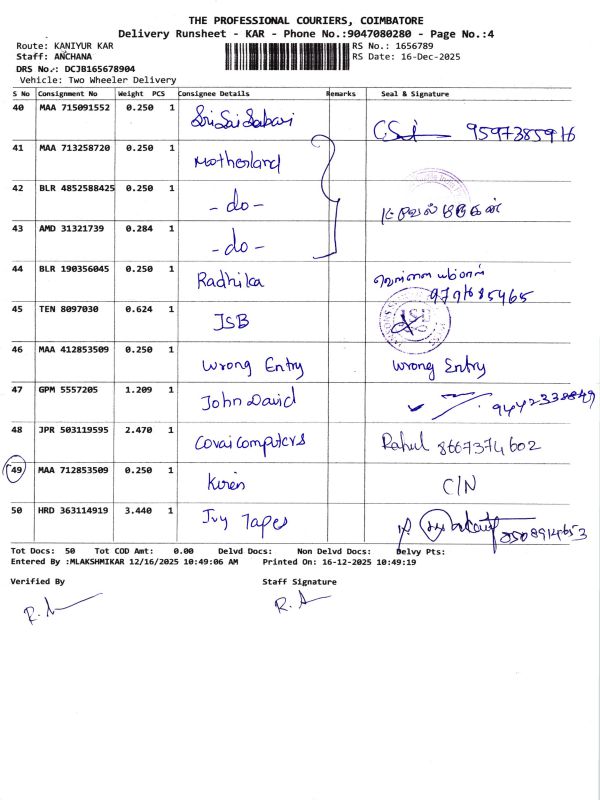 THE PROFESSIONAL COURIERS, COIMBATORE
Delivery Runsheet - KAR - Phone No.:9047080280 - Page No.:4
Route: KANIYUR KAR RS No.: 1656789
Staff: ANCHANA RS Date: 16-Dec-2025
DRS No.: DCJB165678904
Vehicle: Two Wheeler Delivery
S No Consignment No Weight PCS Consignee Details Remarks Seal & Signature
40 MAA 715091552 0.250 1 Sri Sai Sabari 9597385916
41 MAA 713258720 0.250 1 Motherland
42 BLR 4852588425 0.250 1 - do -
43 AMD 31321739 0.284 1 - do -
44 BLR 190356045 0.250 1 Radhika
45 TEN 8097030 0.624 1 JSB
46 MAA 412853509 0.250 1 Wrong Entry Wrong Entry
47 GPM 5557205 1.209 1 John David
48 JPR 503119595 2.470 1 Covai Computers Rahul 8667374602
49 MAA 712853509 0.250 1 Kiren C/N
50 HRD 363114919 3.440 1 Ivy Tapes
Tot Docs: 50 Tot COD Amt: 0.00 Delvd Docs: Non Delvd Docs: Delvy Pts:
Entered By :MLAKSHMIKAR 12/16/2025 10:49:06 AM Printed On: 16-12-2025 10:49:19
Verified By Staff Signature